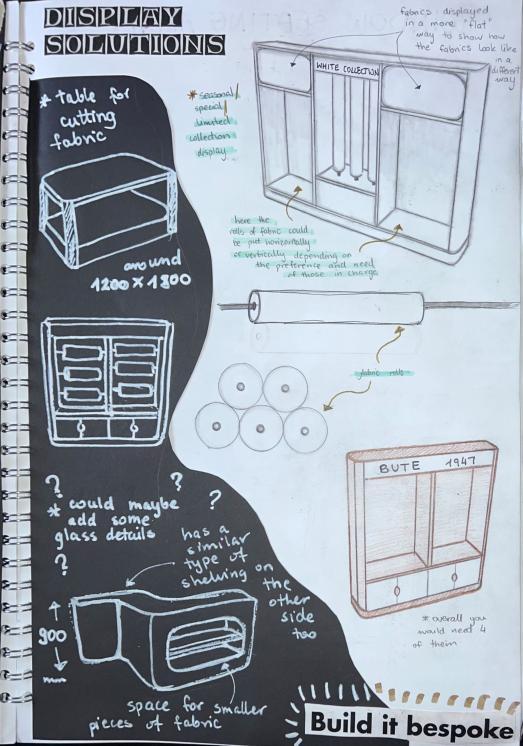 DISPLAY
SOLUTIONS
* table for
cutting
fabric
around
1200 x 1800
fabrics displayed
in a more "flat"
way to show how
the fabrics look like
in a
different
way
WHITE COLLECTION
* seasonal/
special/
limited
collection
display
here the
rolls of fabric could
be put horizontally
or vertically depending on
the preference and need
of those in charge
fabric rolls
? ? ?
* could maybe
add some
glass details
?
has a
similar
type of
shelving on
the
other
side
too
900
mm
space for smaller
pieces of fabric
BUTE 1947
* overall you
would need 4
of them
Build it bespoke